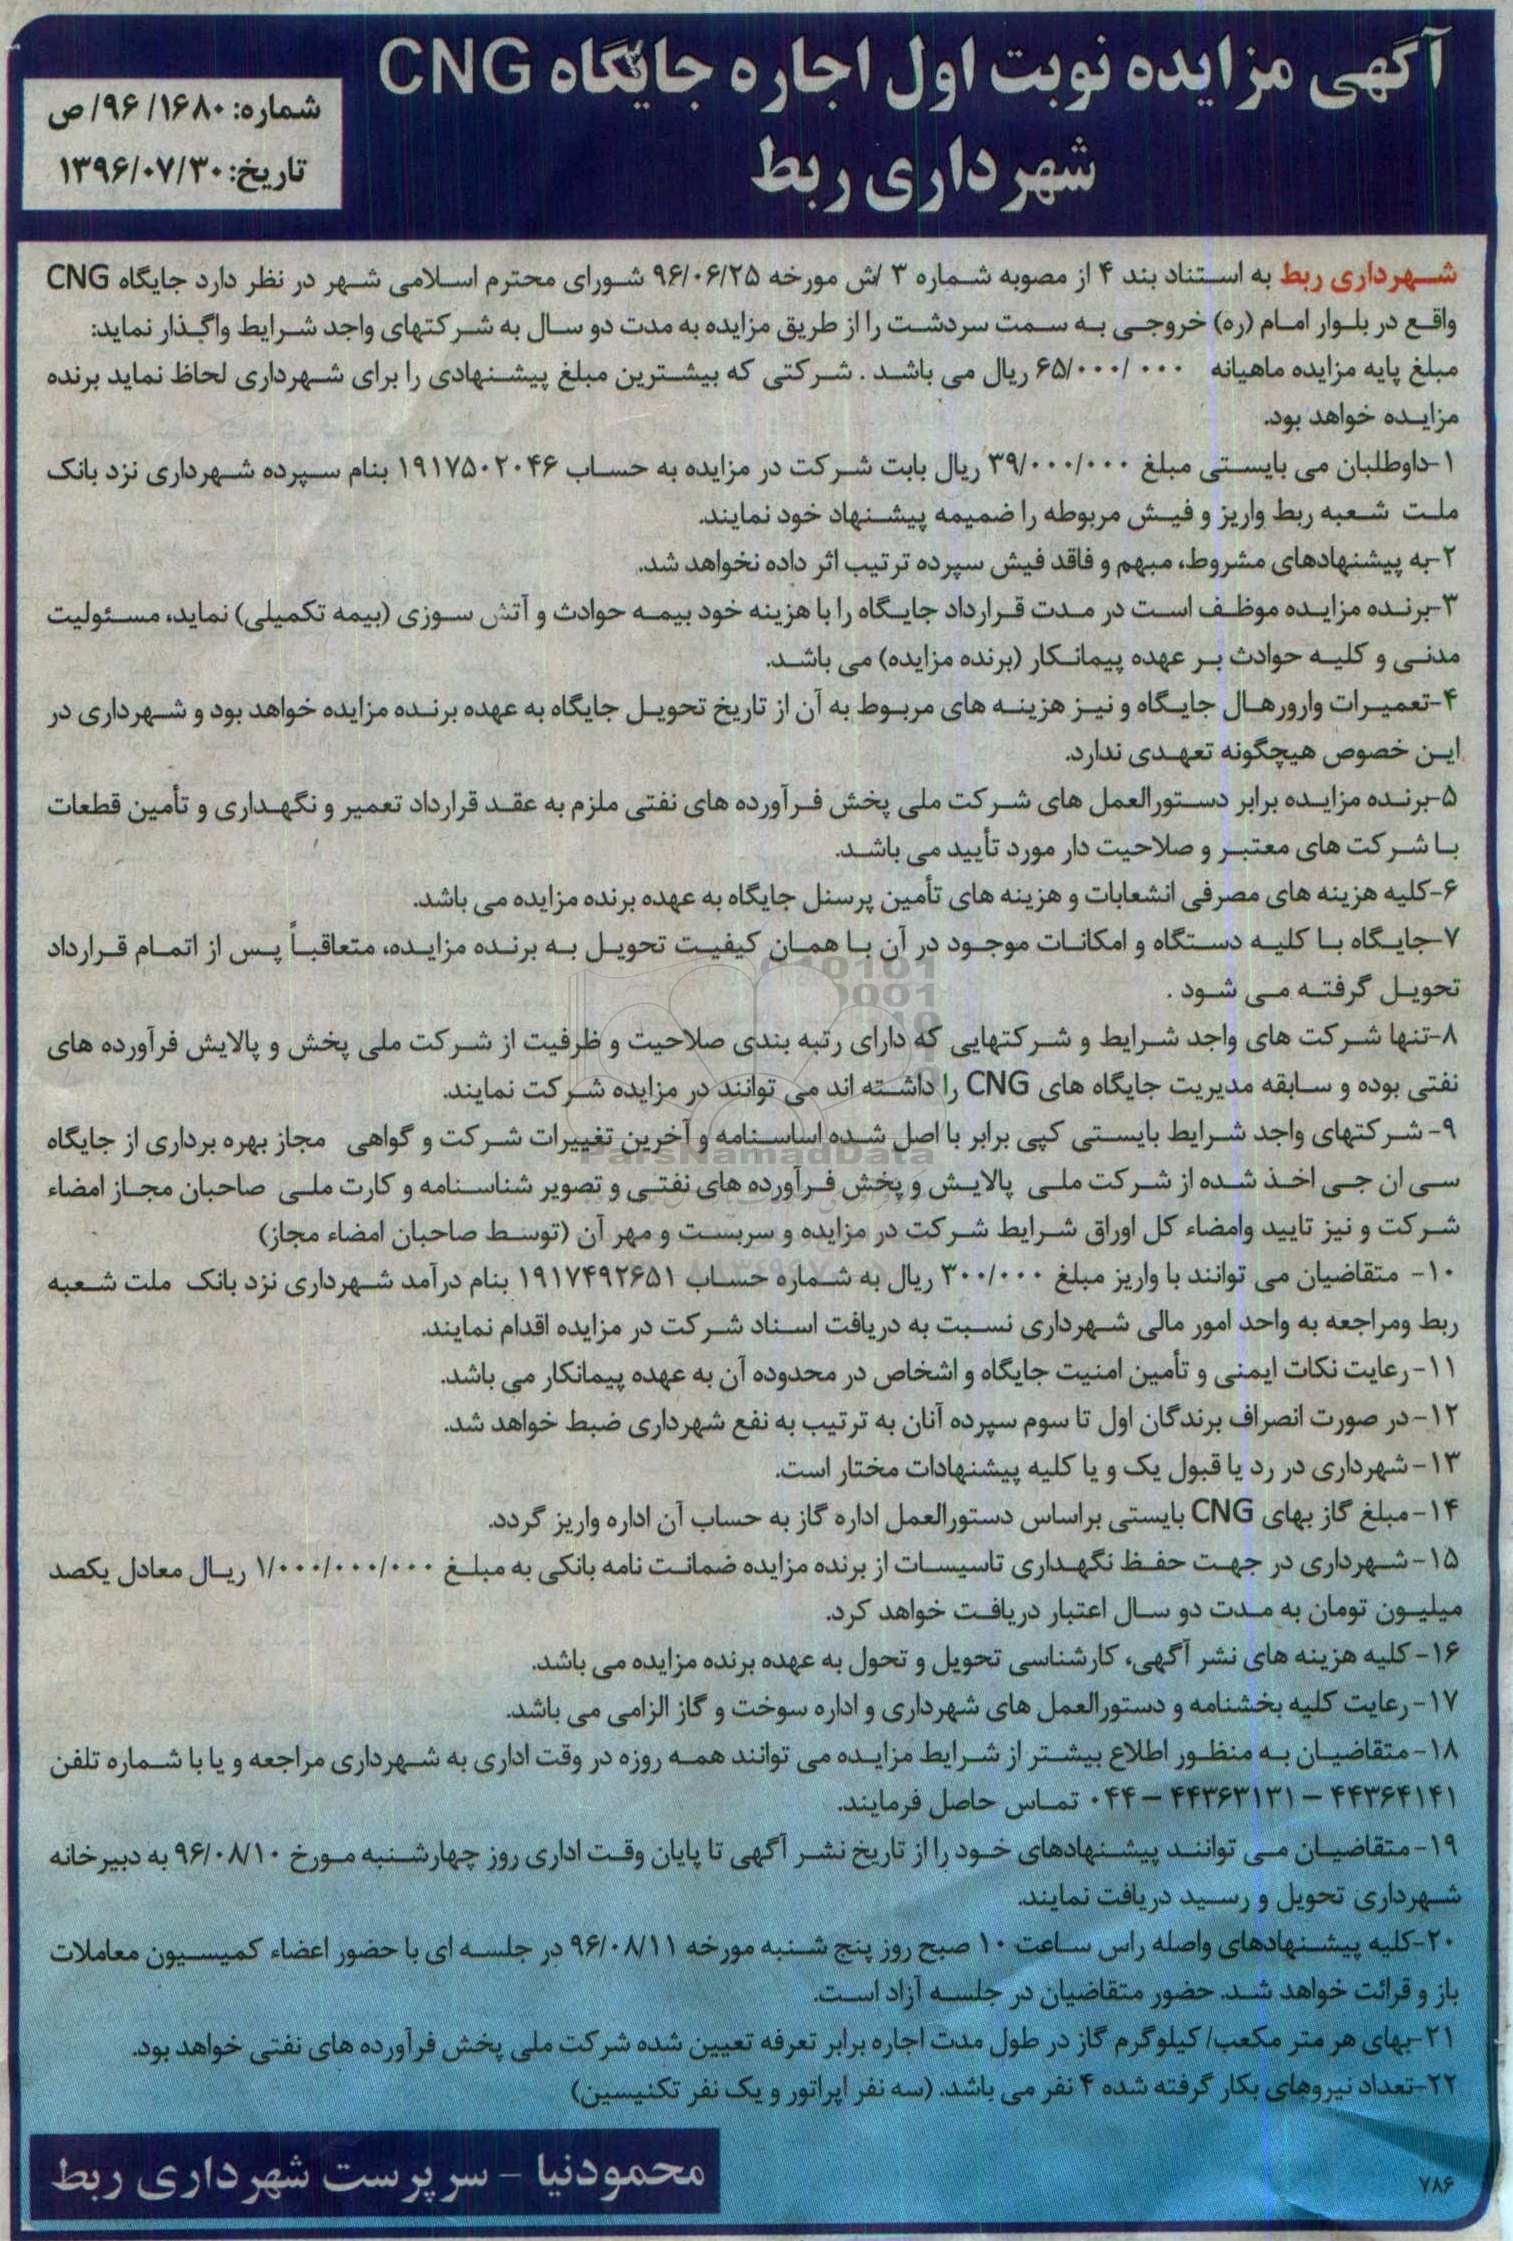 آگهی مزایده نوبت اول اجاره جایگاه CNG
شهرداری ربط
شماره: ۱۶۸۰/ ۹۶/ ص
تاریخ: ۱۳۹۶/۰۷/۳۰
شهرداری ربط به استناد بند ۴ از مصوبه شماره ۳ /ش مورخه ۹۶/۰۶/۲۵ شورای محترم اسلامی شهر در نظر دارد جایگاه CNG
واقع در بلوار امام (ره) خروجی به سمت سردشت را از طریق مزایده به مدت دو سال به شرکتهای واجد شرایط واگذار نماید:
مبلغ پایه مزایده ماهیانه ۶۵/۰۰۰/۰۰۰ ریال می باشد . شرکتی که بیشترین مبلغ پیشنهادی را برای شهرداری لحاظ نماید برنده
مزایده خواهد بود.
۱-داوطلبان می بایستی مبلغ ۳۹/۰۰۰/۰۰۰ ریال بابت شرکت در مزایده به حساب ۱۹۱۷۵۰۲۰۴۶ بنام سپرده شهرداری نزد بانک
ملت شعبه ربط واریز و فیش مربوطه را ضمیمه پیشنهاد خود نمایند.
۲-به پیشنهادهای مشروط، مبهم و فاقد فیش سپرده ترتیب اثر داده نخواهد شد.
۳-برنده مزایده موظف است در مدت قرارداد جایگاه را با هزینه خود بیمه حوادث و آتش سوزی (بیمه تکمیلی) نماید، مسئولیت
مدنی و کلیه حوادث بر عهده پیمانکار (برنده مزایده) می باشد.
۴-تعمیرات وارورهال جایگاه و نیز هزینه های مربوط به آن از تاریخ تحویل جایگاه به عهده برنده مزایده خواهد بود و شهرداری در
این خصوص هیچگونه تعهدی ندارد.
۵-برنده مزایده برابر دستورالعمل های شرکت ملی پخش فرآورده های نفتی ملزم به عقد قرارداد تعمیر و نگهداری و تأمین قطعات
با شرکت های معتبر و صلاحیت دار مورد تأیید می باشد.
۶-کلیه هزینه های مصرفی انشعابات و هزینه های تأمین پرسنل جایگاه به عهده برنده مزایده می باشد.
۷-جایگاه با کلیه دستگاه و امکانات موجود در آن با همان کیفیت تحویل به برنده مزایده، متعاقباً پس از اتمام قرارداد
تحویل گرفته می شود .
۸-تنها شرکت های واجد شرایط و شرکتهایی که دارای رتبه بندی صلاحیت و ظرفیت از شرکت ملی پخش و پالایش فرآورده های
نفتی بوده و سابقه مدیریت جایگاه های CNG را داشته اند می توانند در مزایده شرکت نمایند.
۹- شرکتهای واجد شرایط بایستی کپی برابر با اصل شده اساسنامه و آخرین تغییرات شرکت و گواهی مجاز بهره برداری از جایگاه
سی ان جی اخذ شده از شرکت ملی پالایش و پخش فرآورده های نفتی و تصویر شناسنامه و کارت ملی صاحبان مجاز امضاء
شرکت و نیز تایید وامضاء کل اوراق شرایط شرکت در مزایده و سربست و مهر آن (توسط صاحبان امضاء مجاز)
۱۰- متقاضیان می توانند با واریز مبلغ ۳۰۰/۰۰۰ ریال به شماره حساب ۱۹۱۷۴۹۲۶۵۱ بنام درآمد شهرداری نزد بانک ملت شعبه
ربط ومراجعه به واحد امور مالی شهرداری نسبت به دریافت اسناد شرکت در مزایده اقدام نمایند.
۱۱- رعایت نکات ایمنی و تأمین امنیت جایگاه و اشخاص در محدوده آن به عهده پیمانکار می باشد.
۱۲- در صورت انصراف برندگان اول تا سوم سپرده آنان به ترتیب به نفع شهرداری ضبط خواهد شد.
۱۳- شهرداری در رد یا قبول یک و یا کلیه پیشنهادات مختار است.
۱۴- مبلغ گاز بهای CNG بایستی براساس دستورالعمل اداره گاز به حساب آن اداره واریز گردد.
۱۵- شهرداری در جهت حفظ نگهداری تاسیسات از برنده مزایده ضمانت نامه بانکی به مبلغ ۱/۰۰۰/۰۰۰/۰۰۰ ریال معادل یکصد
میلیون تومان به مدت دو سال اعتبار دریافت خواهد کرد.
۱۶- کلیه هزینه های نشر آگهی، کارشناسی تحویل و تحول به عهده برنده مزایده می باشد.
۱۷- رعایت کلیه بخشنامه و دستورالعمل های شهرداری و اداره سوخت و گاز الزامی می باشد.
۱۸- متقاضیان به منظور اطلاع بیشتر از شرایط مزایده می توانند همه روزه در وقت اداری به شهرداری مراجعه و یا با شماره تلفن
۴۴۳۶۴۱۴۱ – ۴۴۳۶۳۱۳۱ – ۰۴۴ تماس حاصل فرمایند.
۱۹- متقاضیان می توانند پیشنهادهای خود را از تاریخ نشر آگهی تا پایان وقت اداری روز چهارشنبه مورخ ۹۶/۰۸/۱۰ به دبیرخانه
شهرداری تحویل و رسید دریافت نمایند.
۲۰-کلیه پیشنهادهای واصله راس ساعت ۱۰ صبح روز پنج شنبه مورخه ۹۶/۰۸/۱۱ در جلسه ای با حضور اعضاء کمیسیون معاملات
باز و قرائت خواهد شد. حضور متقاضیان در جلسه آزاد است.
۲۱-بهای هر متر مکعب/ کیلوگرم گاز در طول مدت اجاره برابر تعرفه تعیین شده شرکت ملی پخش فرآورده های نفتی خواهد بود.
۲۲-تعداد نیروهای بکار گرفته شده ۴ نفر می باشد. (سه نفر اپراتور و یک نفر تکنیسین)
محمودنیا - سرپرست شهرداری ربط
۷۸۶
ParsNamadData